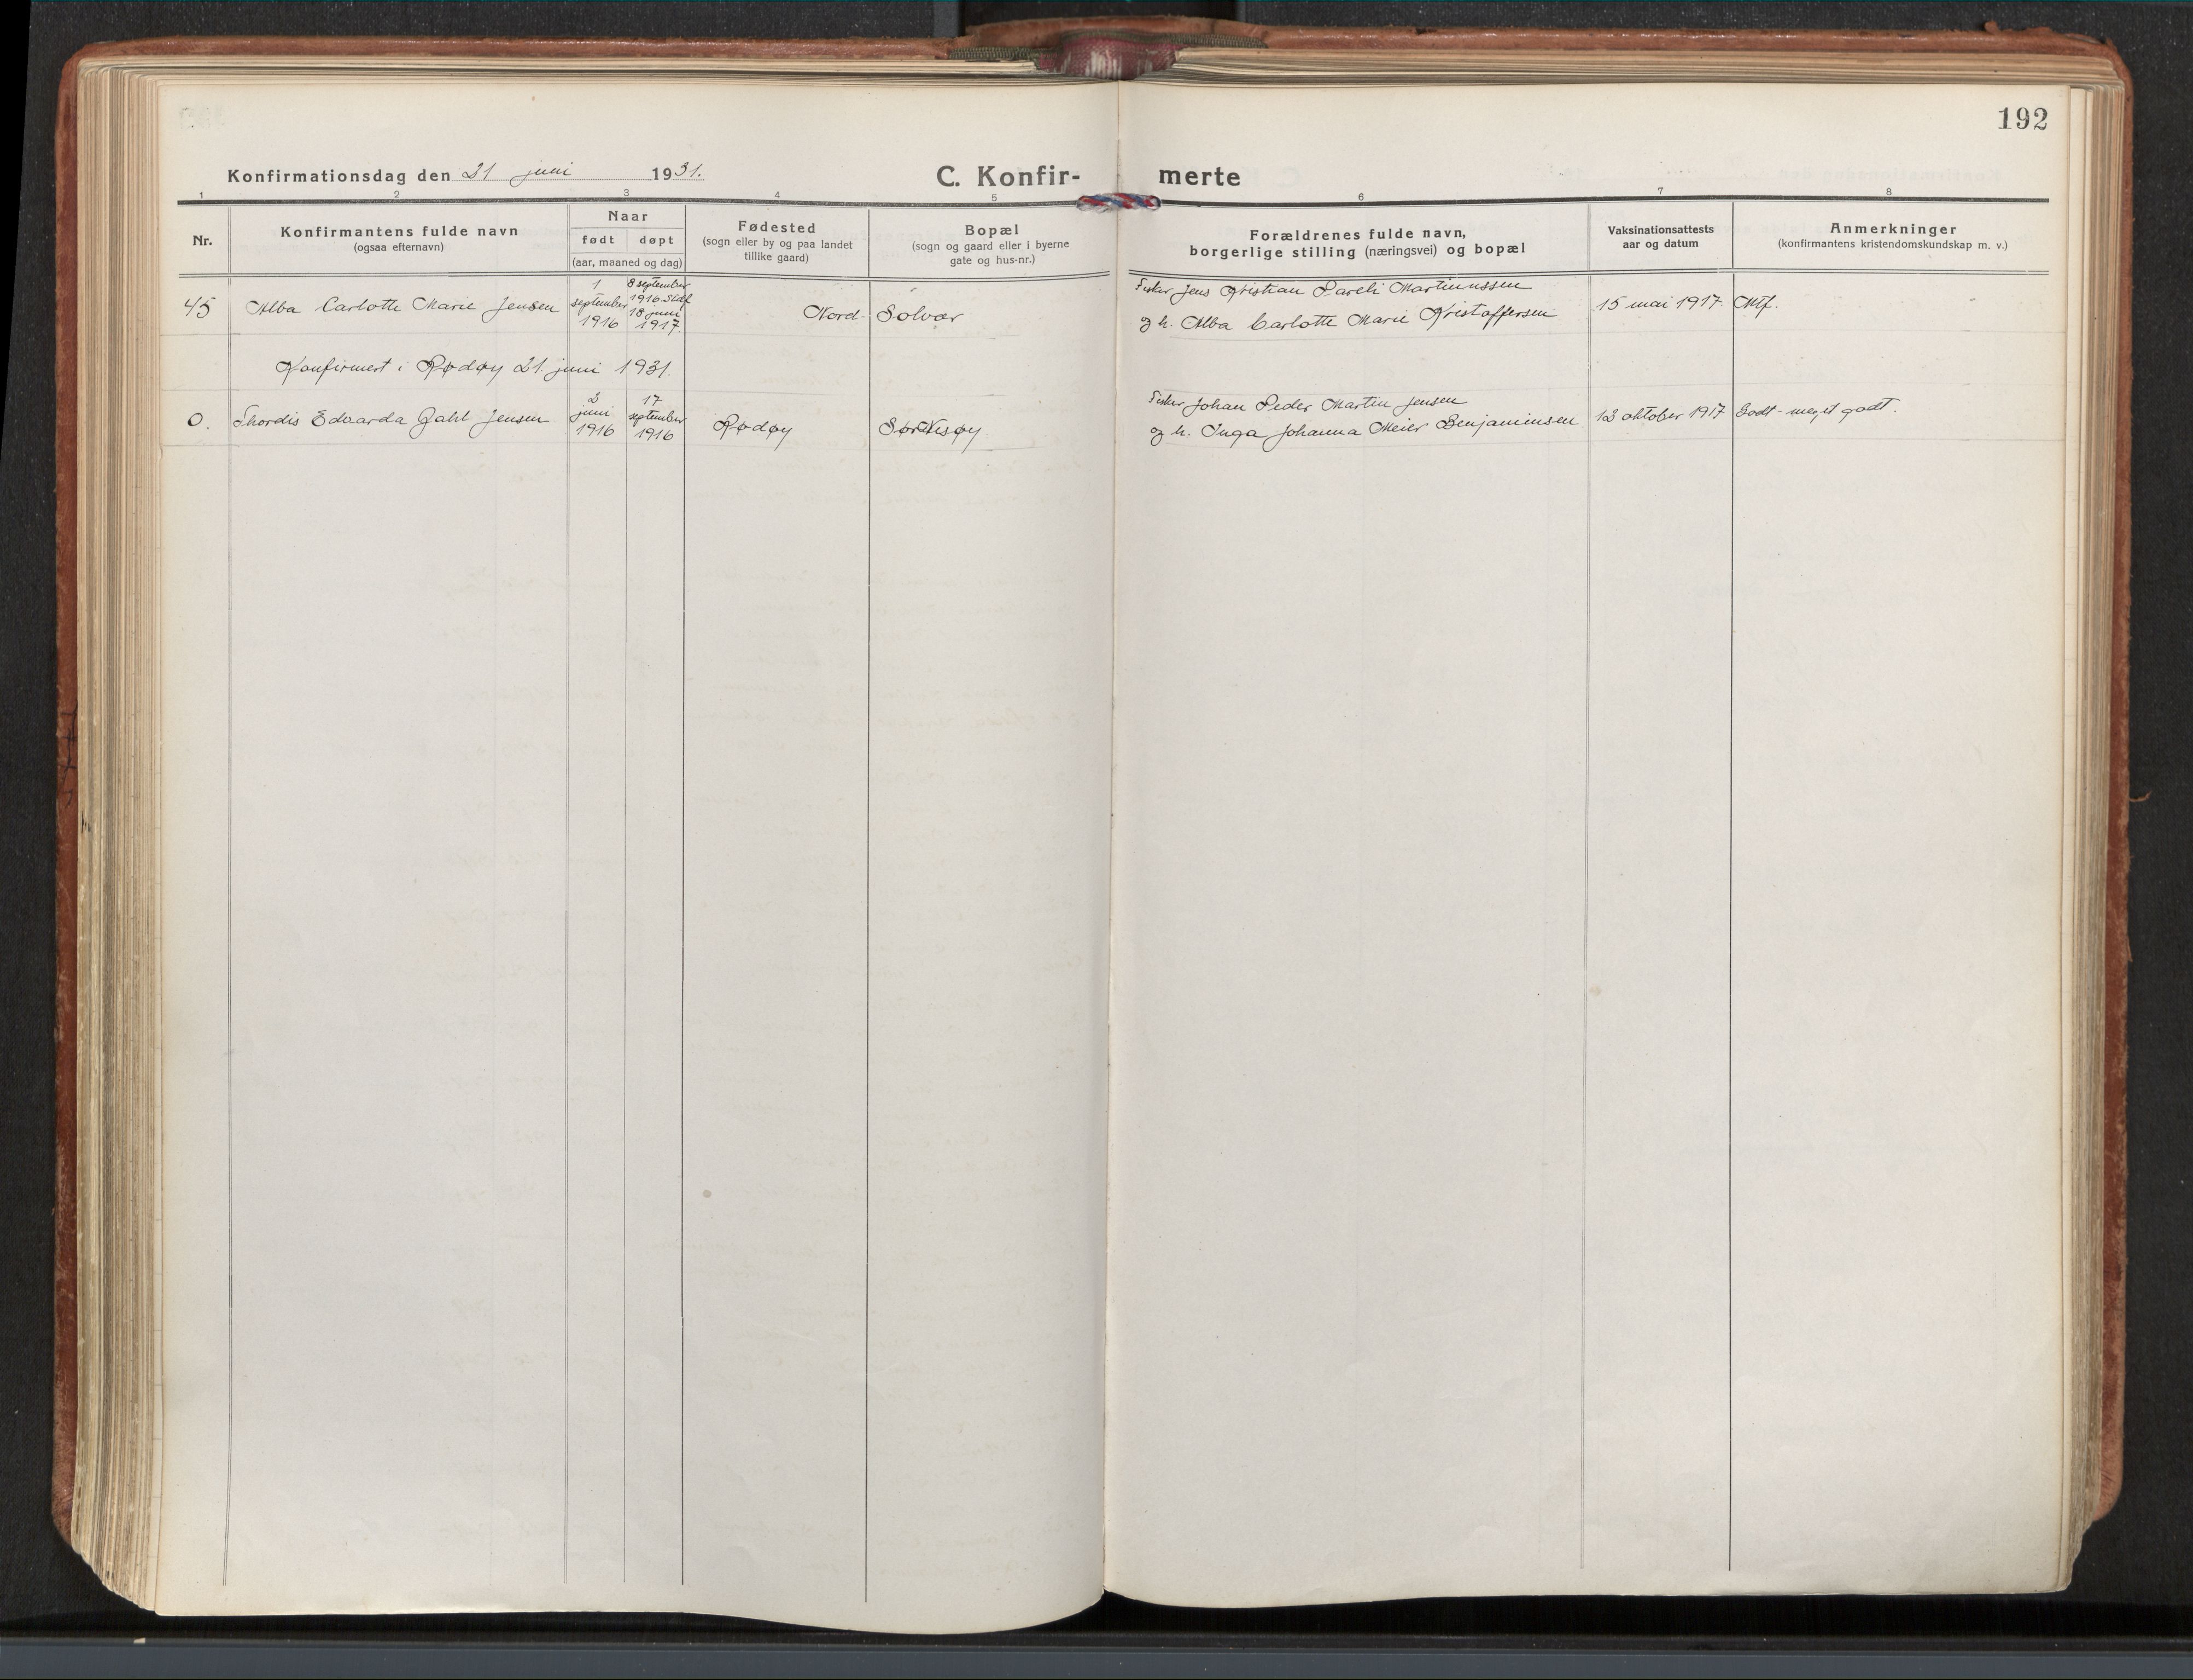 192
Konfirmationsdag den 21 juni 1931.
C. Konfir- merte
1 2 3 4 5 6 7 8
Nr.
Konfirmantens fulde navn
(ogsaa efternavn)
Naar
født døpt
(aar, maaned og dag)
Fødested
(sogn eller by og paa landet
tillike gaard)
Bopæl
(sogn og gaard eller i byerne
gate og hus-nr.)
Forældrenes fulde navn,
borgerlige stilling (næringsvei) og bopæl
Vaksinationsattests
aar og datum
Anmerkninger
(konfirmantens kristendomskundskap m. v.)
45 Alba Carlotte Marie Jensen
1
september
1916
8 september
1916
18 juni
1917.
Nord- Solvær
Fisker Jens Kristian Pareli Martinussen
og h. Alba Carlotte Marie Kristoffersen
15 mai 1917. Mtf.
Konfirmert i Rødøy 21. juni 1931.
0. Thordis Edvarda Dahl Jensen
2
juni
1916
17
september
1916
Rødøy
Sør Nesøy
Fisker Johan Peder Martin Jensen
og h. Inga Johanna Meier Benjaminsen
13 oktober 1917 Godt - meget godt.